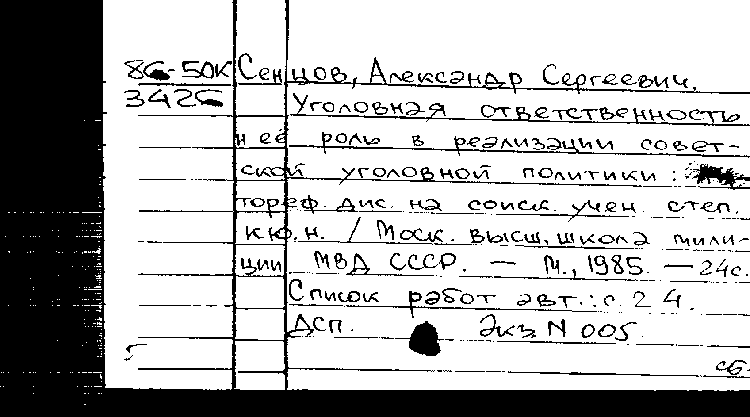 86-50К Сенцов, Александр Сергеевич.
3426 Уголовная ответственность
и её роль в реализации совет-
ской уголовной политики :
тореф. дис. на соиск. учен. степ.
к.ю.н. / Моск. высш. школа мили-
ции МВД СССР. — М., 1985. — 24с.
Список работ авт.: с. 24.
ДСП. Экз N 005